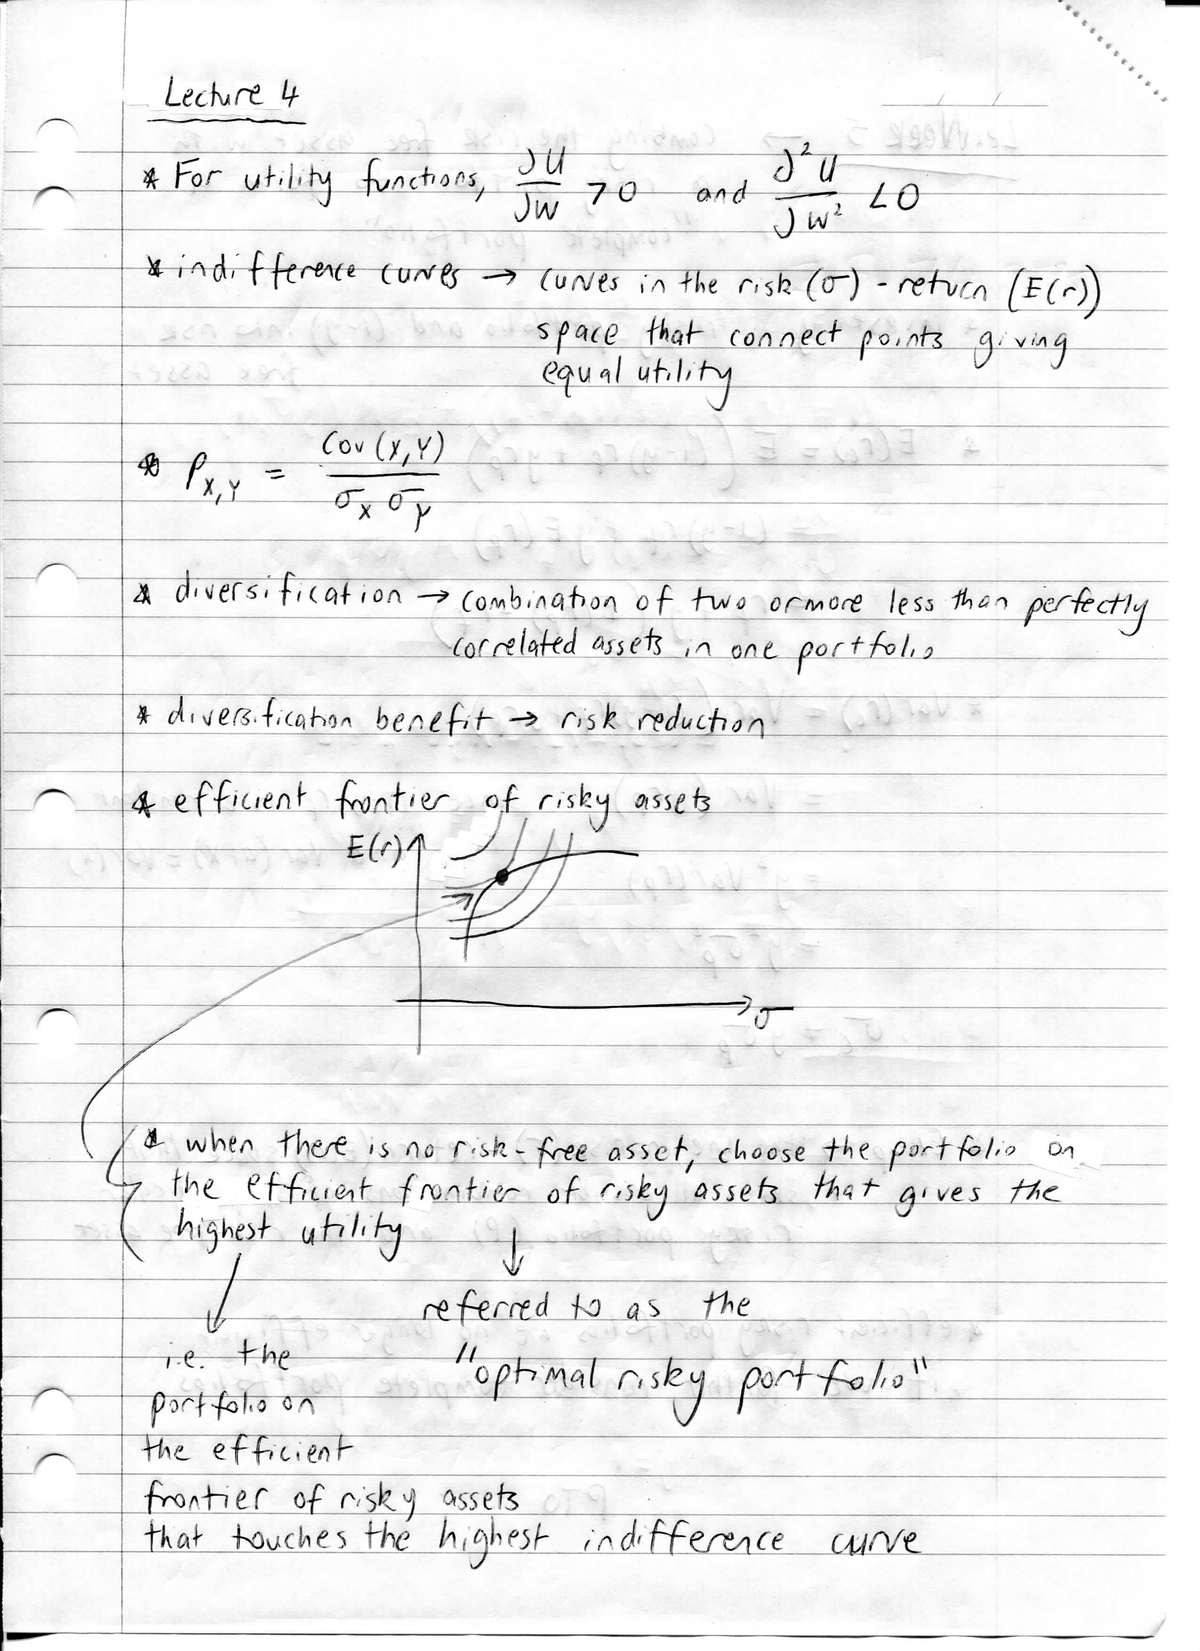 Lecture 4
* For utility functions, ∂U/∂W > 0 and ∂²U/∂W² < 0
* indifference curves → curves in the risk (σ) - return (E(r))
space that connect points giving
equal utility
* ρX,Y = Cov(X,Y) / σX σY
* diversification → combination of two or more less than perfectly
correlated assets in one portfolio
* diversification benefit → risk reduction
* efficient frontier of risky assets
E(r)
σ
* when there is no risk-free asset, choose the portfolio on
the efficient frontier of risky assets that gives the
highest utility
referred to as the
"optimal risky portfolio"
i.e. the
portfolio on
the efficient
frontier of risky assets
that touches the highest indifference curve